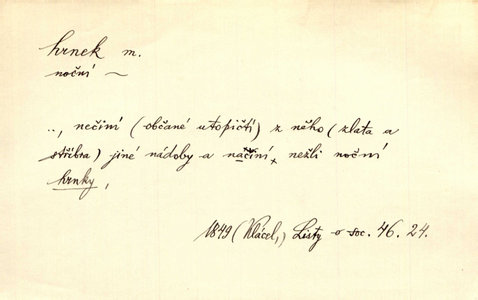 hrnek m.
noční ~
.., nečiní (občané utopičtí) z něho (zlata a
stříbra) jiné nádoby a náčiní, nežli noční
hrnky,
1849 (Klácel,) Listy o soc. 46. 24.